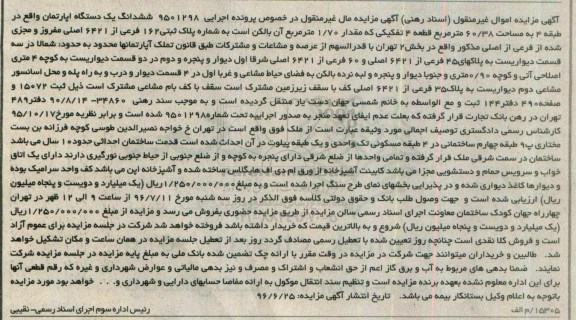 آگهی مزایده اموال غیرمنقول (اسناد رهنی) آگهی مزایده مال غیرمنقول در خصوص پرونده اجرایی ۹۵۰۱۲۹۸ ششدانگ یک دستگاه آپارتمان واقع در
طبقه ۴ به مساحت ۶۰/۳۸ مترمربع قطعه ۴ تفکیکی که مقدار ۱/۷۰ مترمربع آن بالکن است به شماره پلاک ثبتی ۱۶۲ فرعی از ۶۴۲۱ اصلی مفروز و مجزی
شده از فرعی از اصلی مذکور واقع در بخش ۲ تهران با قدرالسهم از عرصه و مشاعات و مشترکات طبق قانون تملک آپارتمانها محدود به حدود: شمالا در سه
قسمت دیواریست به پلاکهای ۴۵ فرعی از ۶۴۲۱ اصلی و ۶۰ فرعی از ۶۴۲۱ اصلی شرقا اول دیوار و پنجره و دوم در دو قسمت دیواریست به کوچه ۴ متری
اصلاحی آتی و کوچه ۰/۹۰ متری و جنوبا دیوار و پنجره و لبه نرده بالکن به فضای حیاط مشاعی و غربا اول در ۴ قسمت دیوار و درب و به راه پله و محل آسانسور
مشاعی دوم دیواریست به پلاک ۳۵ فرعی از ۶۴۲۱ اصلی کف با سقف زیرزمین مشترک است سقف با کف بام مشاعی مشترک است ذیل ثبت ۱۵۰۷۲ و
صفحه ۴۹۰ دفتر ۱۴۴ ثبت و مع الواسطه به خانم شمسی جهان دست یاز منتقل گردیده است و به موجب سند رهنی ۳۴۸۶۰- ۹۰/۸/۱۴ دفتر ۴۸۹
تهران در رهن بانک تجارت قرار گرفته که بعلت عدم ایفای تعهد منجر به صدور اجراییه تحت شماره ۹۵۰۱۲۹۸ شده است و برابر نظریه مورخ ۹۵/۱۰/۱۷
کارشناس رسمی دادگستری توصیف اجمالی مورد وثیقه عبارت است از ملک فوق واقع است در تهران خ خواجه نصیرالدین طوسی کوچه فرزانه بن بست
مختاری پ ۹ طبقه چهارم ساختمانی در ۴ طبقه مسکونی تک واحدی و یک طبقه پیلوت در آن احداث شده است قدمت ساختمان احداثی حدود ۱۰ سال می باشد
ساختمان در سمت شرقی ملک قرار گرفته و تمامی واحدها از ضلع شرقی دارای پنجره به کوچه و از ضلع جنوبی از حیاط جنوبی نورگیری دارند دارای یک اتاق
خواب و سرویس حمام و دستشویی مجزا می باشد کابینت آشپزخانه از ورق ام دی اف هایگلاس ساخته شده و آشپزخانه اپن می باشد کف واحد سرامیک بوده
و دیوارها کاغذ دیواری شده و در پذیرایی بخشهای نمای طرح سنگ اجرا شده است و به مبلغ ۱/۲۵۰/۰۰۰/۰۰۰ ریال (یک میلیارد و دویست و پنجاه میلیون
ریال) ارزیابی شده است و جهت وصول طلب بانک و حقوق دولتی کلاسه فوق الذکر در روز سه شنبه مورخ ۹۶/۷/۱۱ از ساعت ۹ الی ۱۲ ظهر در تهران
چهارراه جهان کودک ساختمان معاونت اجرای اسناد رسمی سالن مزایده از طریق مزایده حضوری بفروش می رسد و مزایده از مبلغ ۱/۲۵۰/۰۰۰/۰۰۰ ریال
(یک میلیارد و دویست و پنجاه میلیون ریال) شروع و به بالاترین قیمت که خریدار داشته باشد فروخته خواهد شد شرکت در جلسه مزایده برای عموم آزاد
است و فروش کلا نقدی است چنانچه روز تعیین شده با تعطیل رسمی مصادف گردد روز بعد از تعطیل جلسه مزایده در همان ساعت و مکان تشکیل خواهد
شد. طالبین و خریداران میتوانند جهت شرکت در مزایده در وقت مقرر با ارائه چک تضمین شده بانک ملی به مبلغ پایه مزایده در جلسه مزایده شرکت
نمایند. ضمنا بدهی های مربوط به آب و برق گاز اعم از حق انشعاب و اشتراک و مصرف و نیز بدهی مالیاتی و عوارض شهرداری و غیره که رقم قطعی آنها
برای این اداره معلوم نشده بعهده برنده مزایده است و تنظیم سند انتقال موکول به ارائه مفاصا حسابهای دارایی و شهرداری و... خواهد بود مورد مزایده
باتوجه به اعلام وکیل بستانکار بیمه می باشد. تاریخ انتشار آگهی مزایده: ۹۶/۶/۲۵
۱۵۳۰۵/م الف رئیس اداره سوم اجرای اسناد رسمی- نقیبی